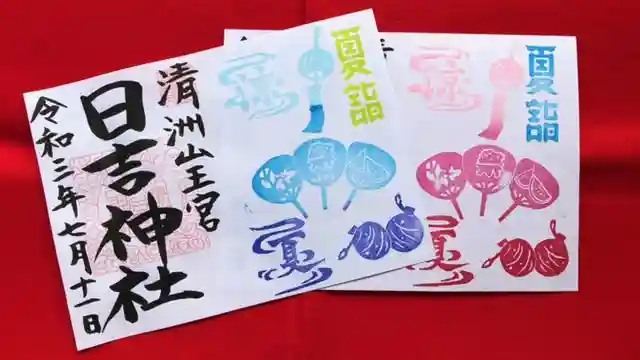 夏詣
清洲山王宮
日吉神社
令和三年七月十一日
涼
夏
夏詣
夏